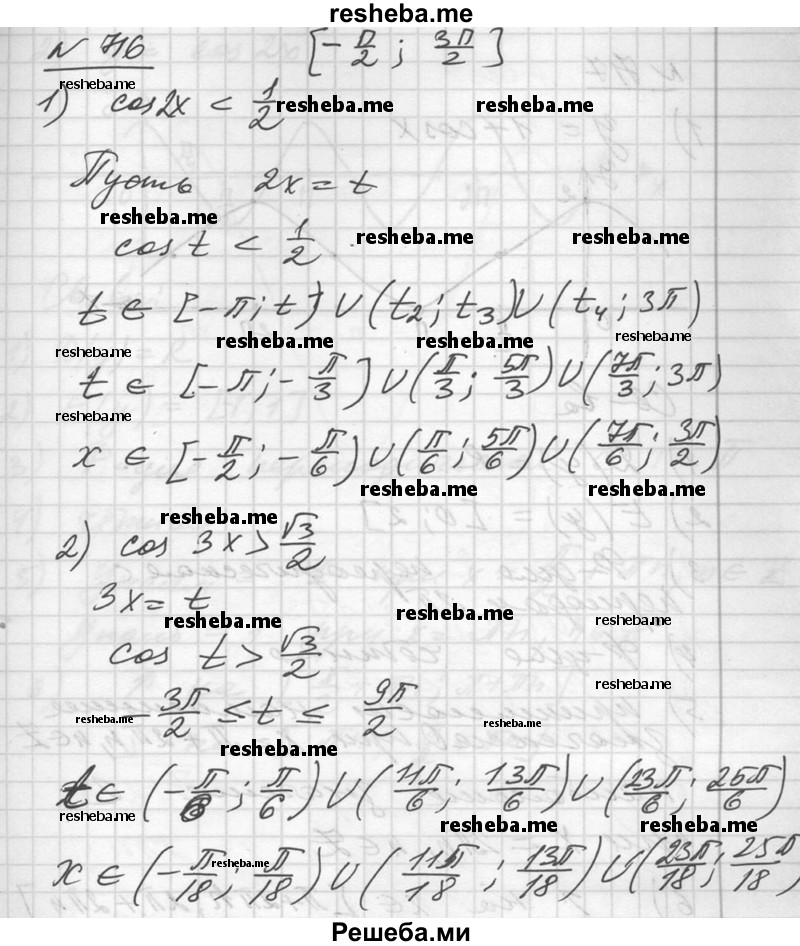 resheba.me
№ 716 [-π/2; 3π/2]
resheba.me
1) cos2x < 1/2 resheba.me resheba.me
Пусть 2x = t
resheba.me
cos t < 1/2 resheba.me resheba.me
t ∈ [-π; t) ∪ (t₂; t₃) ∪ (t₄; 3π)
resheba.me resheba.me resheba.me resheba.me
t ∈ [-π; -π/3] ∪ (π/3; 5π/3) ∪ (7π/3; 3π)
resheba.me
x ∈ [-π/2; -π/6) ∪ (π/6; 5π/6) ∪ (7π/6; 3π/2)
resheba.me resheba.me
resheba.me
2) cos 3x > √3/2
3x = t
resheba.me resheba.me resheba.me
cos t > √3/2
resheba.me
-3π/2 ≤ t ≤ 9π/2
resheba.me resheba.me
resheba.me
t ∈ (-π/6; π/6) ∪ (11π/6; 13π/6) ∪ (23π/6; 25π/6)
resheba.me resheba.me resheba.me
resheba.me
x ∈ (-π/18; π/18) ∪ (11π/18; 13π/18) ∪ (23π/18; 25π/18)
Решеба.ми